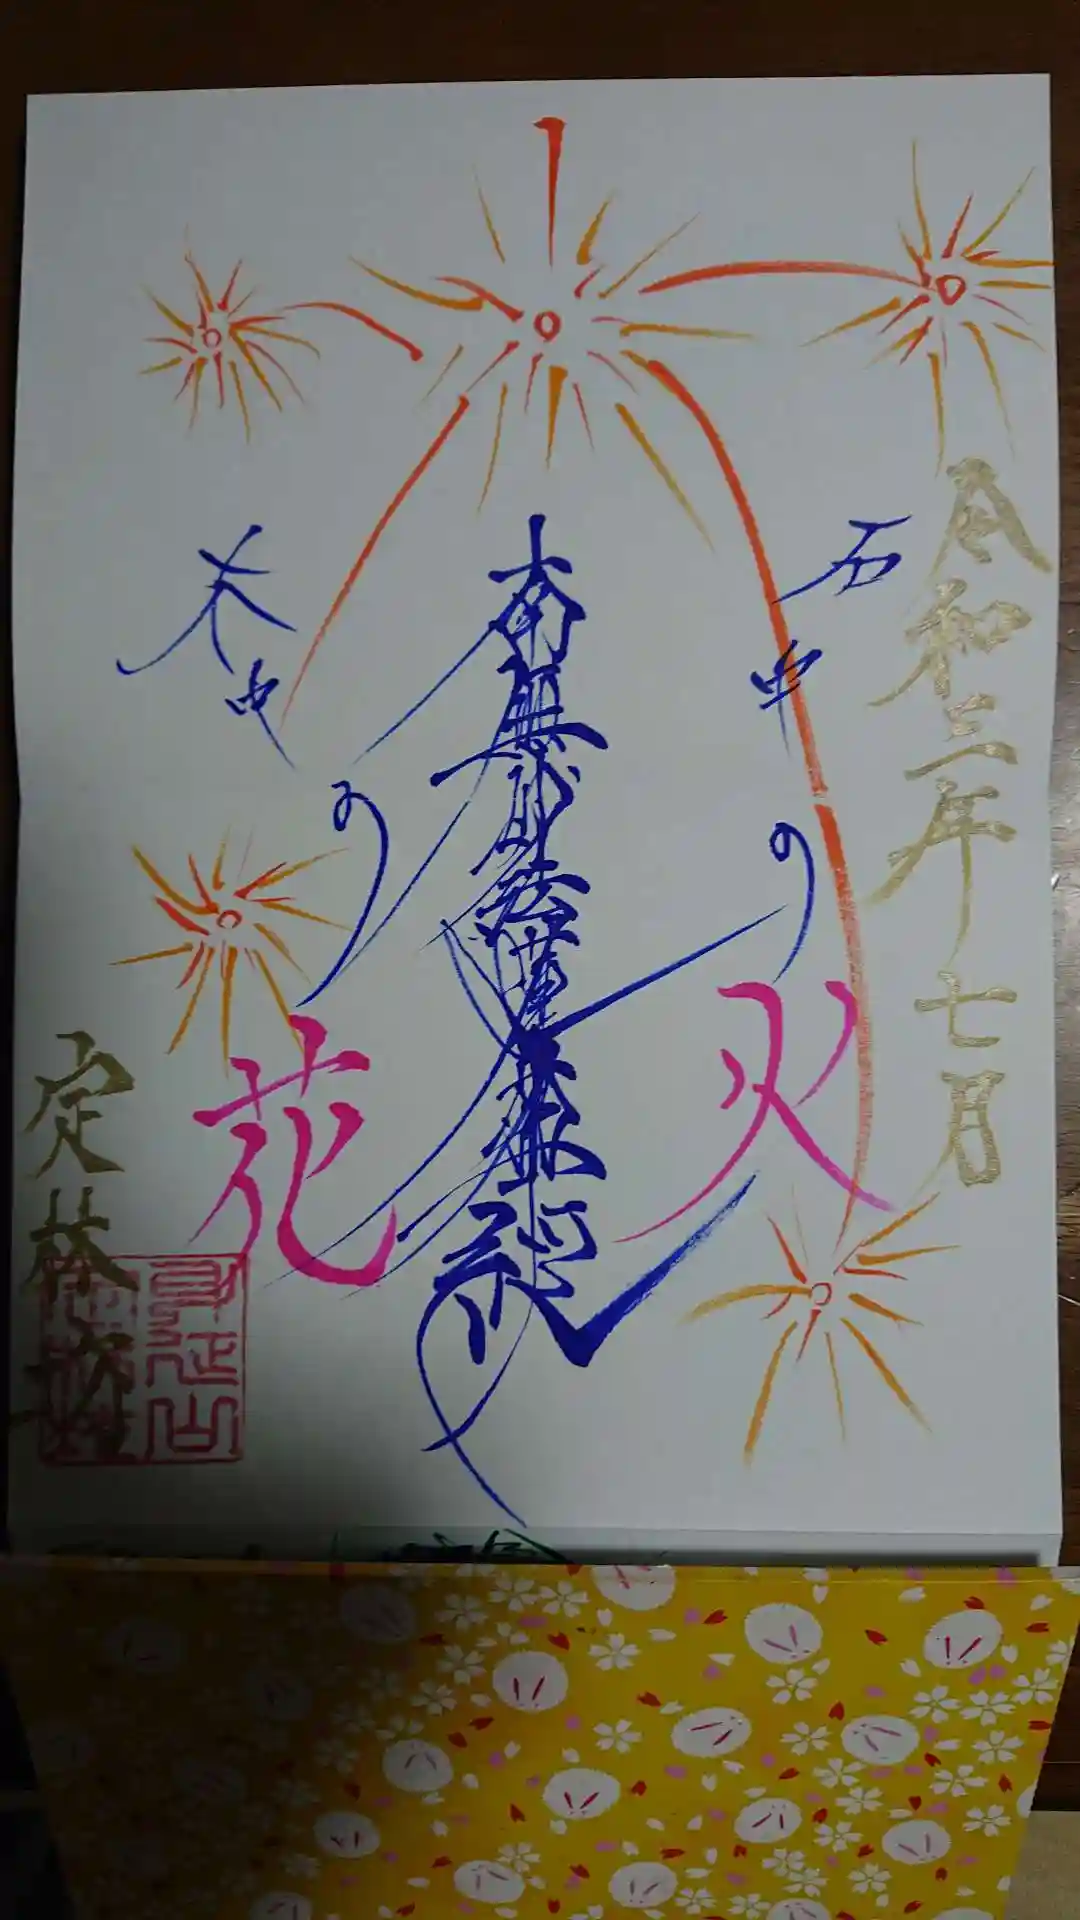 令和三年七月
石中の火
南無妙法蓮華経
木中の花
定林坊
身延山